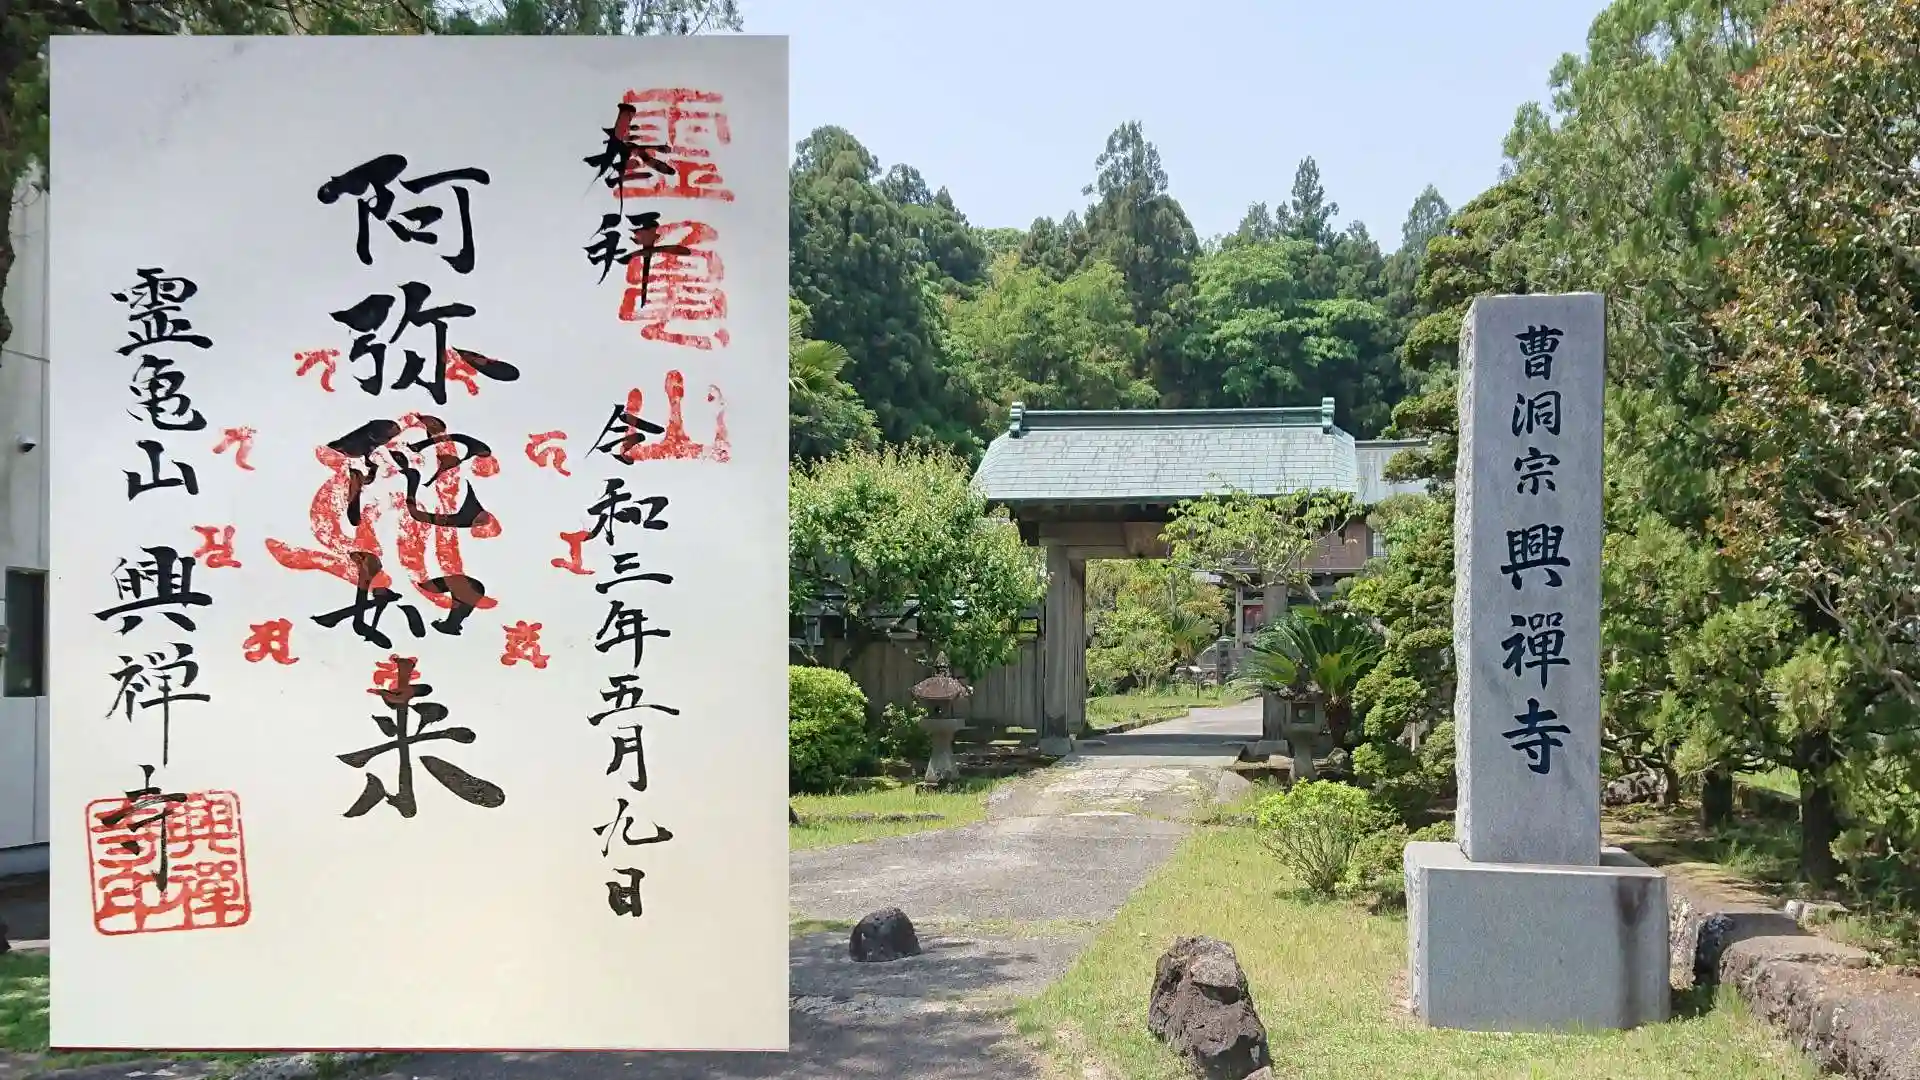 奉拝
令和三年五月九日
阿弥陀如来
霊亀山 興禅寺
靈龜山
興禪寺印
曹洞宗 興禪寺